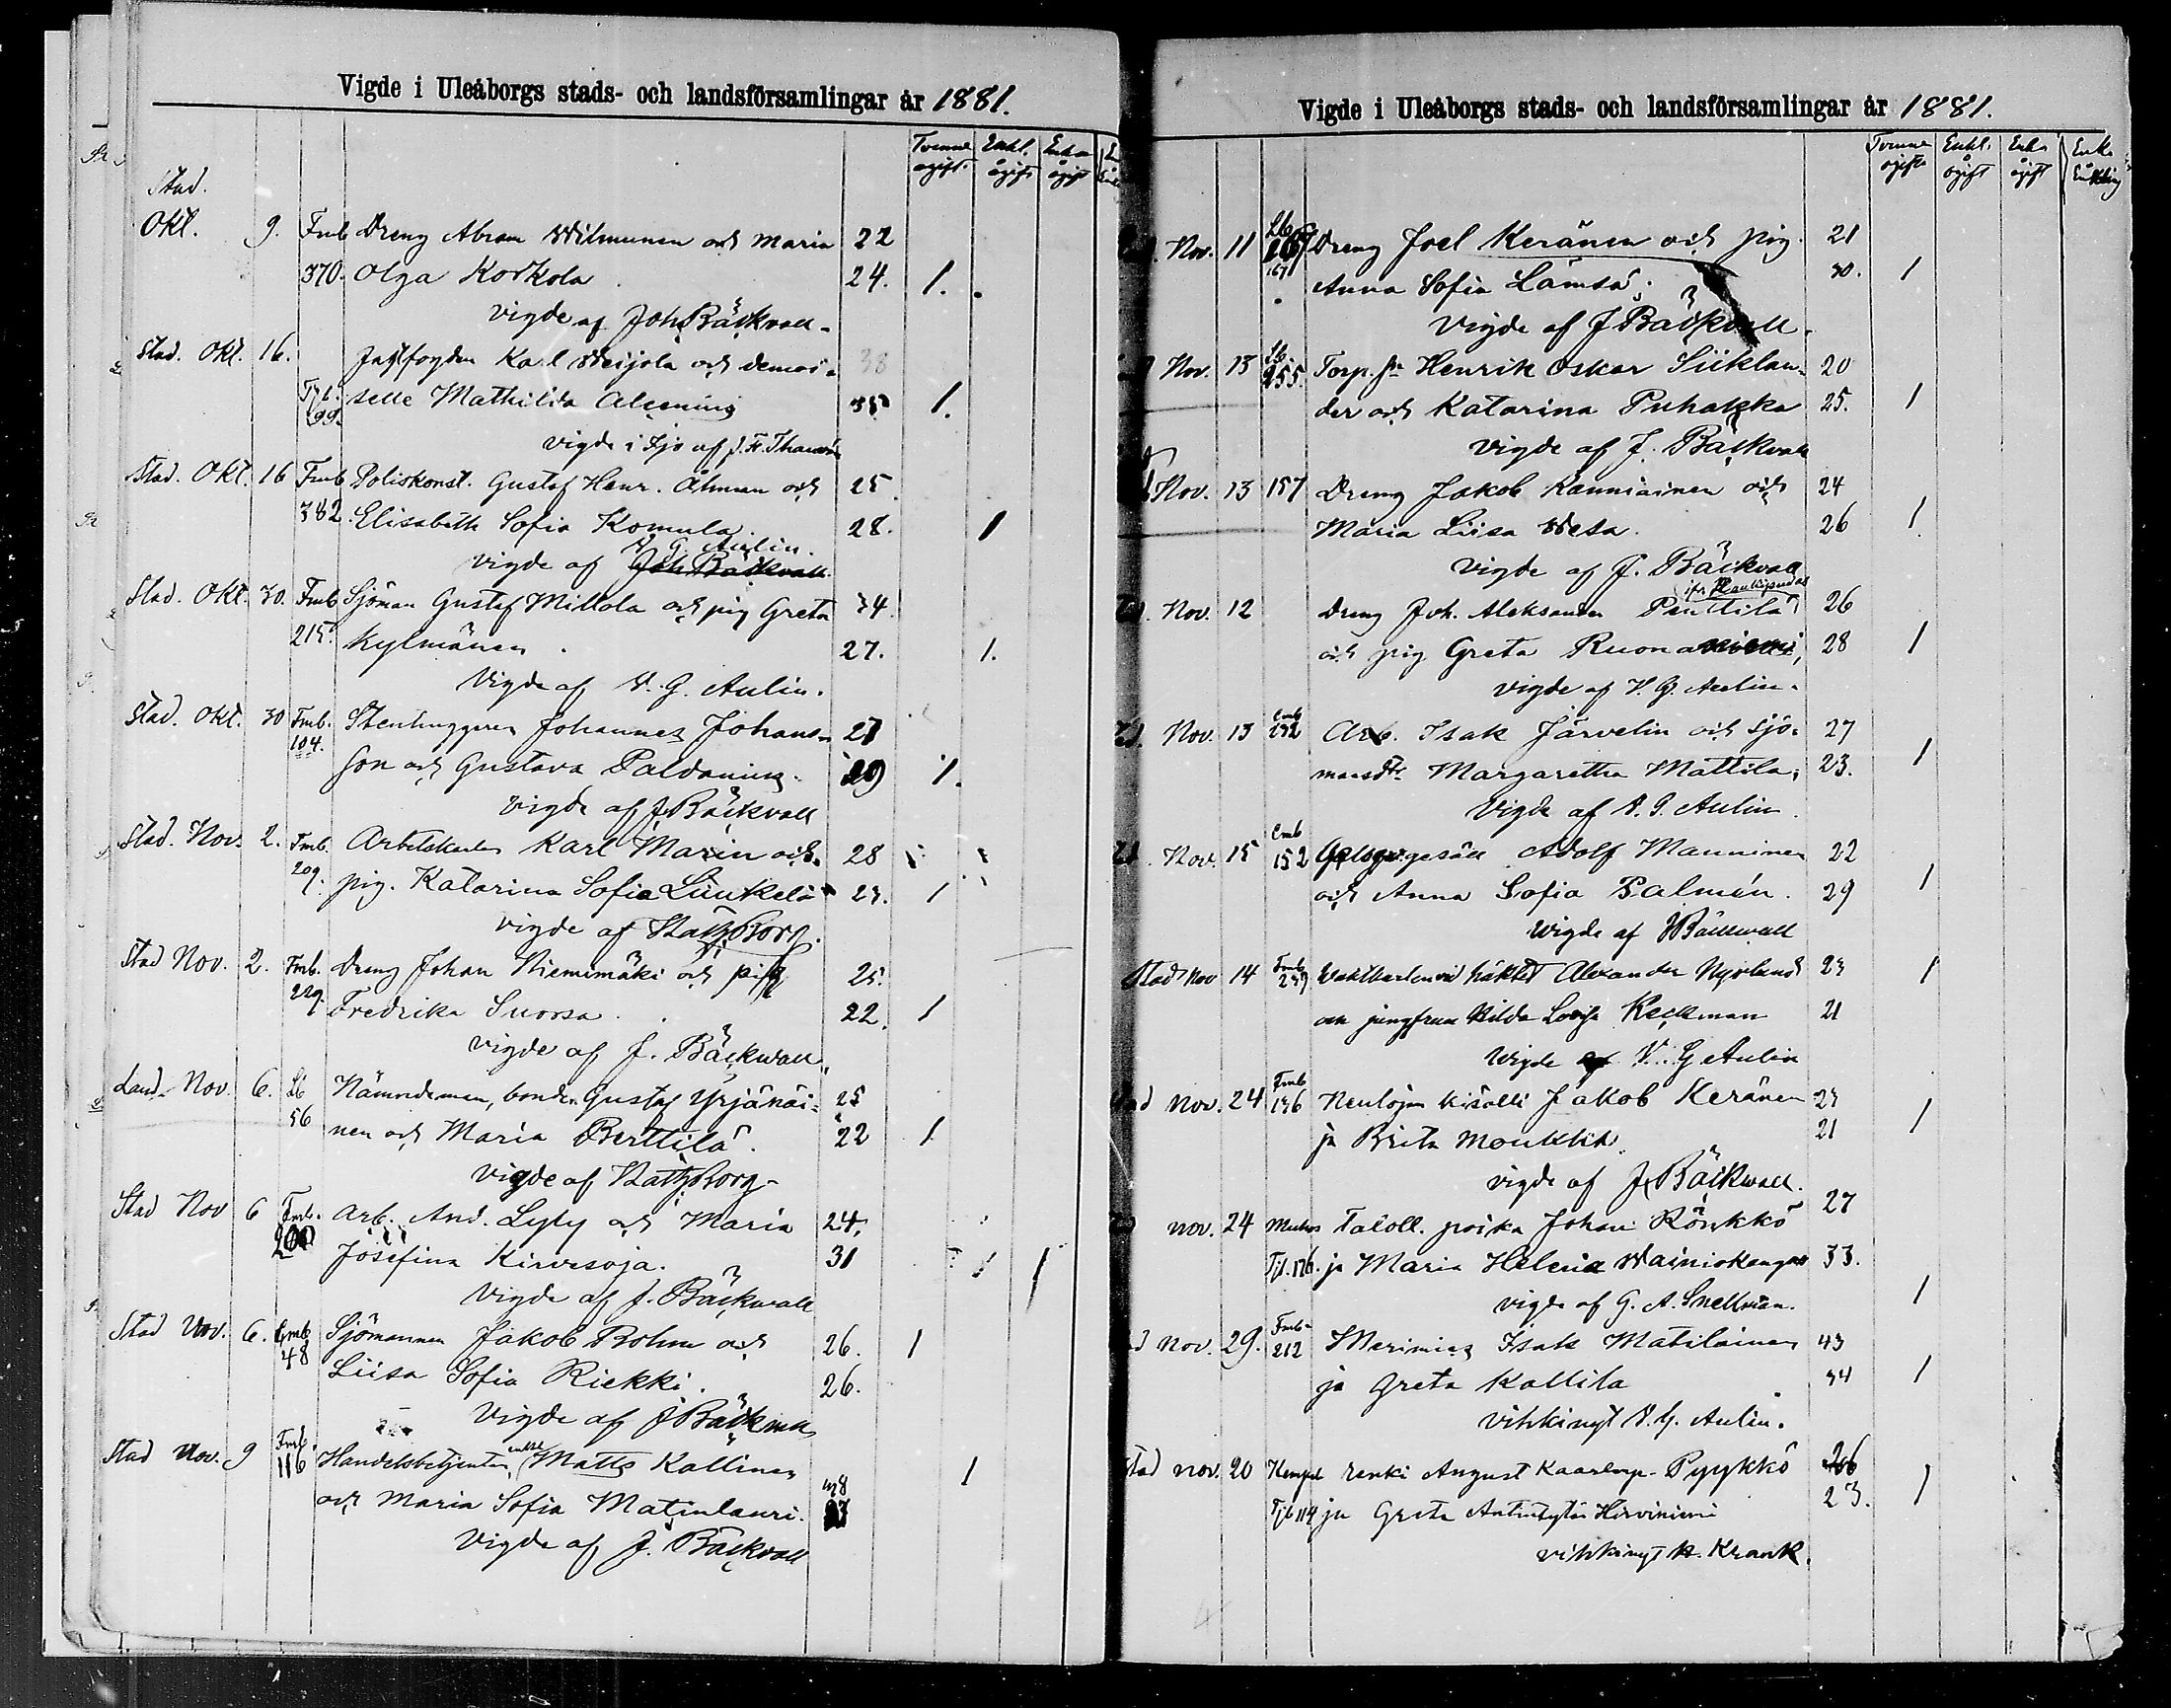 Vigde i Uleåborgs stads- och landsförsamlingar år 1881.
Tvenne ogifte Enkl. ogift Enka ogift
Stad.
Okt. 9. Fmb Dreng Abram Wilmunen och Maria 22
370. Olga Korkola 24. 1.
vigde af Joh Bäckvall
Stad. Okt. 16. Karl Weijola och demoi- 38
99. selle Mathilda Alcenius 35 1.
vigde i Ijo af
Stad. Okt. 16 Fmb Poliskonst. Gustaf Henr. Åhman och 25
382. Elisabeth Sofia Komula. 28. 1
vigde af V. G. Aulin.
Stad. Okt. 30. Fmb Sjöman Gustaf Mittola och pig Greta 34.
215. Kylmänen. 27. 1.
Vigde af V. G. Aulin.
Stad. Okt. 30 Fmb. Stenhuggaren Johannes Johans- 28
104. son och Gustava Paldanius. 29 1.
vigde af J. Bäckvall
Stad. Nov. 2. Fmb. Arbetskarlen Karl Marin och 28
209. pig. Katarina Sofia 23. 1
vigde af
Stad Nov. 2. Fmb. Dreng Johan Niemimäki och pig 25.
229. Fredrika Suorsa. 22. 1
vigde af J. Bäckwall.
Land. Nov. 6. Lb Nämndeman, bonden Gustaf Yrjänäi- 25
56 nen och Maria Perttilä. 22 1
vigde af
Stad Nov 6 Fmb. Arb. And. Lyly och Maria 24.
200 Josefina Kirvesoja. 31 1
Vigde af J. Bäckwall
Stad Nov. 6. Fmb Sjömannen Jakob Bohm och 26. 1
48 Liisa Sofia Riekki. 26.
Vigde af J Bäckvall
Stad Nov. 9 Fmb. Handelsbetjenten, enkl. Matts Kallinen
116 och Maria Sofia Matinlauri. 1
Vigde af J. Bäckvall
Vigde i Uleåborgs stads- och landsförsamlingar år 1881.
Tvenne ogifte Enkl. å ogift Enka å ogift Enka Enkling
Nov. 11 Lb Dreng Joel Keränen och pig. 21
167 Anna Sofia Lämsä. 30. 1
Vigde af J Bäckvall.
Nov. 13 Lb 255. Torp. sn Henrik Oskar Siiklan- 20
der och Katarina Puhakka 25. 1
Vigde af J. Bäckvall
Nov. 13 157 Dreng Jakob Kauniainen och 24
Maria Liisa Wesa. 26 1
Vigde af J. Bäckvall
Nov. 12 Dreng Joh. Aleksander Penttilä ifr. Haukipudas 26
och pig Greta Ruonaniemi, 28 1
vigde af V. G. Aulin.
Nov. 13 Fmb 232 Arb. Isak Järvelin och sjö- 27
mansdtr. Margaretha Mattila, 23. 1
Vigde af V. G. Aulin.
Nov. 15 Fmb 152 Adolf Manninen 22
och Anna Sofia Palmén. 29 1
Vigde af Bäckwall
Stad Nov 14 Fmb 259 Vaktkarlen vid häktet Alexander Nyelund 23 1
och jungfrun Hilda Lovisa Keckman 21
Vigde af V. G Aulin
nov. 24 Fmb 136 Neulojan kisälli Jakob Keränen 23
ja Brita Moukka. 21 1
vigde af J. Bäckwall.
nov. 24 Muhos Taloll. poika Johan Rönkkö 27
Tjl. 176. ja Maria Helena Wainiokangas 33.
vigde af G. A. Snellman. 1
nov. 29. Fmb. 212 Merimies Isak Matilainen 43
ja Greta Kallila 34 1
vihkinyt V. G. Aulin.
Stad nov. 20 Kempel renki August Kaarlenp. Pyykkö 26
Tjl 114 ja Greta Antintytär Hirviniemi 23. 1
vihkinyt K. Krank.